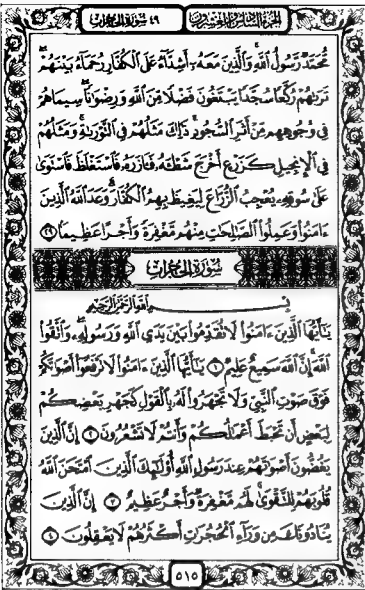 الجزء السادس والعشرون
٤٩ سورة الحجرات
مُّحَمَّدٌ رَّسُولُ اللَّهِ وَالَّذِينَ مَعَهُ أَشِدَّاءُ عَلَى الْكُفَّارِ رُحَمَاءُ بَيْنَهُمْ
تَرَاهُمْ رُكَّعًا سُجَّدًا يَبْتَغُونَ فَضْلًا مِّنَ اللَّهِ وَرِضْوَانًا سِيمَاهُمْ
فِي وُجُوهِهِم مِّنْ أَثَرِ السُّجُودِ ذَٰلِكَ مَثَلُهُمْ فِي التَّوْرَاةِ وَمَثَلُهُمْ
فِي الْإِنجِيلِ كَزَرْعٍ أَخْرَجَ شَطْأَهُ فَآزَرَهُ فَاسْتَغْلَظَ فَاسْتَوَىٰ
عَلَىٰ سُوقِهِ يُعْجِبُ الزُّرَّاعَ لِيَغِيظَ بِهِمُ الْكُفَّارَ وَعَدَ اللَّهُ الَّذِينَ
ءَامَنُوا وَعَمِلُوا الصَّالِحَاتِ مِنْهُم مَّغْفِرَةً وَأَجْرًا عَظِيمًا ٢٩
سُورَةُ الْحُجُرَاتِ
بِسْمِ اللَّهِ الرَّحْمَٰنِ الرَّحِيمِ
يَا أَيُّهَا الَّذِينَ ءَامَنُوا لَا تُقَدِّمُوا بَيْنَ يَدَيِ اللَّهِ وَرَسُولِهِ وَاتَّقُوا
اللَّهَ إِنَّ اللَّهَ سَمِيعٌ عَلِيمٌ ١ يَا أَيُّهَا الَّذِينَ ءَامَنُوا لَا تَرْفَعُوا أَصْوَاتَكُمْ
فَوْقَ صَوْتِ النَّبِيِّ وَلَا تَجْهَرُوا لَهُ بِالْقَوْلِ كَجَهْرِ بَعْضِكُمْ
لِبَعْضٍ أَن تَحْبَطَ أَعْمَالُكُمْ وَأَنتُمْ لَا تَشْعُرُونَ ٢ إِنَّ الَّذِينَ
يَغُضُّونَ أَصْوَاتَهُمْ عِندَ رَسُولِ اللَّهِ أُولَٰئِكَ الَّذِينَ امْتَحَنَ اللَّهُ
قُلُوبَهُمْ لِلتَّقْوَىٰ لَهُم مَّغْفِرَةٌ وَأَجْرٌ عَظِيمٌ ٣ إِنَّ الَّذِينَ
يُنَادُونَكَ مِن وَرَاءِ الْحُجُرَاتِ أَكْثَرُهُمْ لَا يَعْقِلُونَ ٤
٥١٥